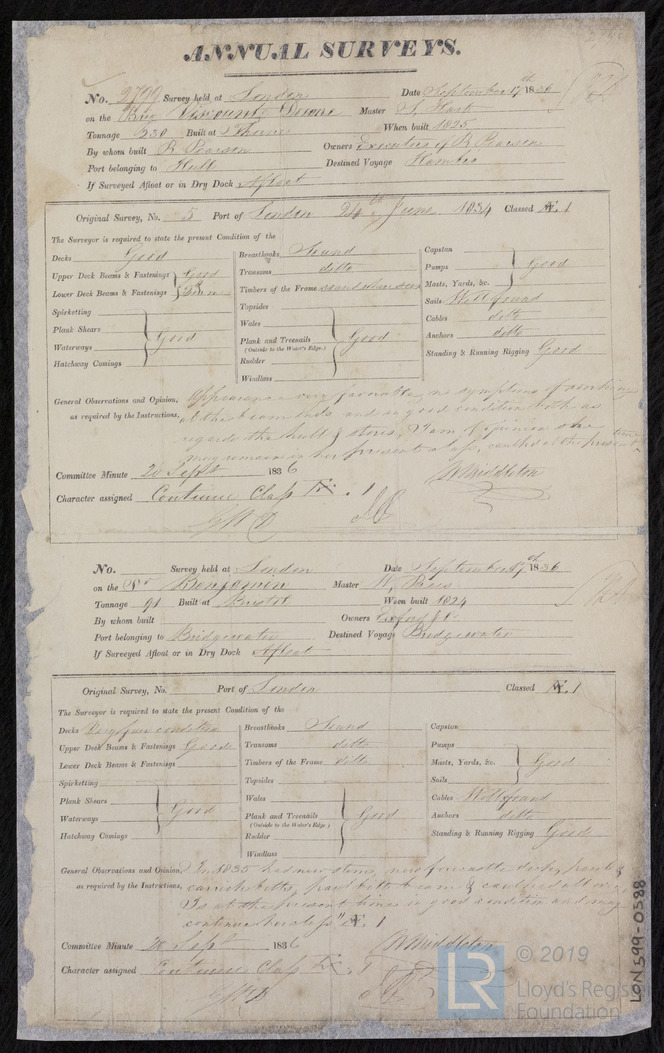 ANNUAL SURVEYS.
No. 2799 Survey held at London Date September 17th 1836
on the Brig Viscount Master S. Hart
Tonnage 230 Built at Thorne When built 1825
By whom built R Pearson Owners Executors of R Pearson
Port belonging to Hull Destined Voyage Hambro
If Surveyed Afloat or in Dry Dock Afloat
Original Survey, No. 5 Port of London 24th June 1834 Classed Æ. 1
The Surveyor is required to state the present Condition of the
Decks Good
Upper Deck Beams & Fastenings Good
Lower Deck Beams & Fastenings
Spirketting
Plank Shears
Waterways Good
Hatchway Comings
Breasthooks Sound
Transoms ditto
Timbers of the Frame sound when seen
Topsides
Wales
Plank and Treenails Good
(Outside to the Water's Edge.)
Rudder
Windlass
Capstan
Pumps Good
Masts, Yards, &c.
Sails Well found
Cables ditto
Anchors ditto
Standing & Running Rigging Good
General Observations and Opinion, Appearance very favorable, no symptoms of working
as required by the Instructions, at the beam ends and in good condition both as
regards the hull & stores, I am of opinion she
may remain in her present class, caulked at the present time
Committee Minute 20 Sept 1836 W Middleton
Character assigned Continue Class Æ. 1
No. Survey held at London Date September 17th 1836
on the Sr Benjamin Master W. Rees
Tonnage 91 Built at Bristol When built 1824
By whom built Owners Exford & Co
Port belonging to Bridgewater Destined Voyage Bridgewater
If Surveyed Afloat or in Dry Dock Afloat
Original Survey, No. Port of London Classed Æ. 1
The Surveyor is required to state the present Condition of the
Decks Very fair condition
Upper Deck Beams & Fastenings Good
Lower Deck Beams & Fastenings
Spirketting
Plank Shears
Waterways Good
Hatchway Comings
Breasthooks Sound
Transoms ditto
Timbers of the Frame ditto
Topsides
Wales
Plank and Treenails Good
(Outside to the Water's Edge.)
Rudder
Windlass
Capstan
Pumps
Masts, Yards, &c. Good
Sails
Cables Well found
Anchors ditto
Standing & Running Rigging Good
General Observations and Opinion, In 1835 had new stem, new forecastle deck, pawl &
as required by the Instructions, carrick bitts, pawl bitt beam & caulked all over
Is at the present time in good condition and may
continue her class Æ 1
Committee Minute 20 Sept 1836 W Middleton
Character assigned Continue Class Æ. 1
LON 599-0588
© 2019
LR
Lloyd's Regis
Foundation